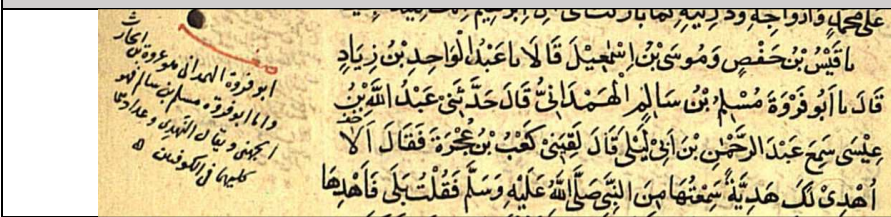 على محمد وازواجه وذريته كما باركت على ال ابرهيم
نا قيس بن حفص وموسى بن اسمعيل قالا نا عبد الواحد بن زياد
قال نا ابو فروة مسلم بن سالم الهمداني قال حدثني عبد الله بن
عيسى سمع عبد الرحمن بن ابي ليلى قال لقيني كعب بن عجرة فقال الا
اهدي لك هدية سمعتها من النبي صلى الله عليه وسلم فقلت بلى فاهدها
ابو فروة الهمداني هو عروة بن الحارث
واما ابو فروة مسلم بن سالم فهو
الجهني ويقال النهدي وعدادهما
كليهما في الكوفيين